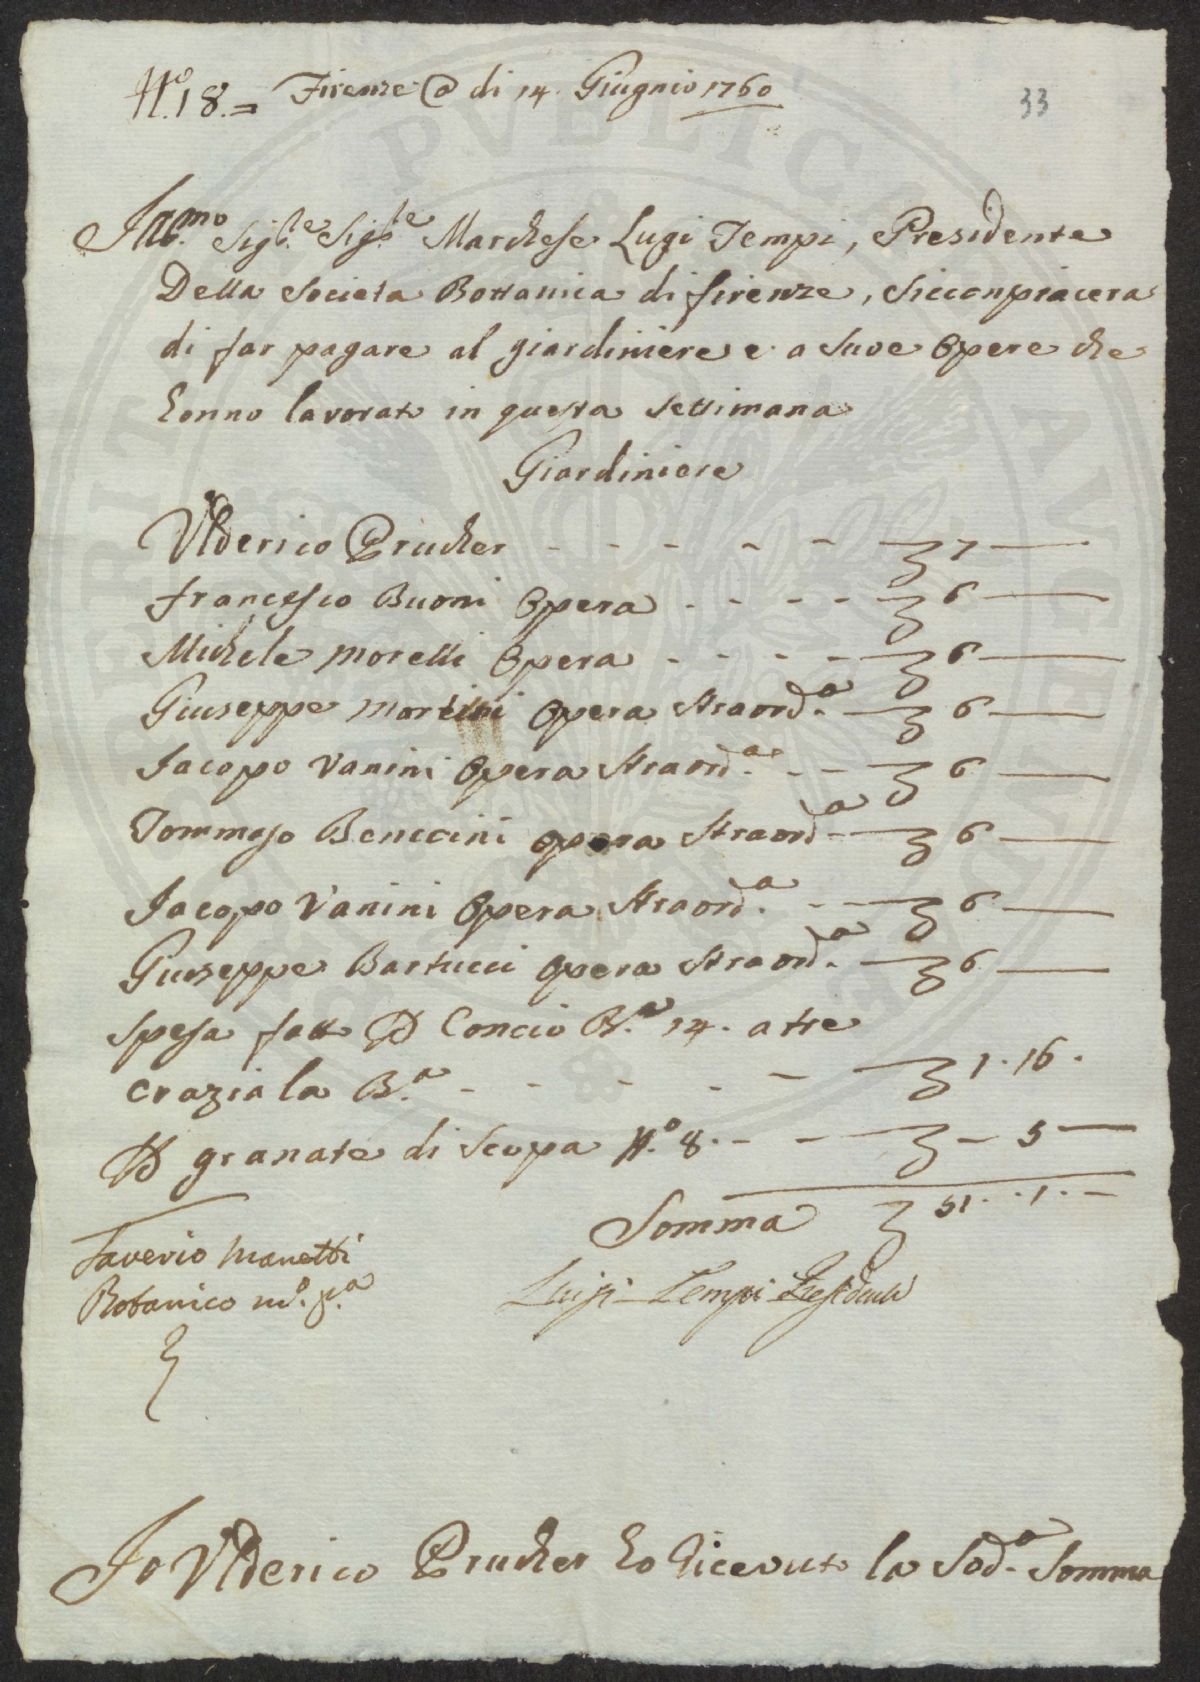 N.º 18.= Firenze @ di 14. Giugnio 1760
33
Ill.mo Sig.re Sig.re Marchese Lugi Tempi, Presidente
Della Societa Bottanica di firenze, siccenpiacera
di far pagare al giardiniere e a suoe Opere che
honno lavorato in questa settimana
Giardiniere
Vlderico Prucher - - - - - £ 7 —
francesco Buoni Opera - - - - £ 6 —
Michele morelli Opera - - - - £ 6 —
Giuseppe martini Opera straord.a - £ 6 —
Jacopo Vanini Opera straord.a - - £ 6 —
Tommaso Benecini opera straord.a - £ 6 —
Jacopo Vanini Opera straord.a - - £ 6 —
Giuseppe Bartucci opera straord.a - £ 6 —
spesa fatt P Concio B.e 14. a tre
crazia la B.a - - - - - £ 1. 16.
P granate di scopa N.º 8. - - £ - 5 —
Somma £ 51. . 1. -
Saverio Manetti
Botanico m.º p.a
Luigi Tempi Presidente
Io Vlderico Prucher ho Riceuuto la Sod.a Somma